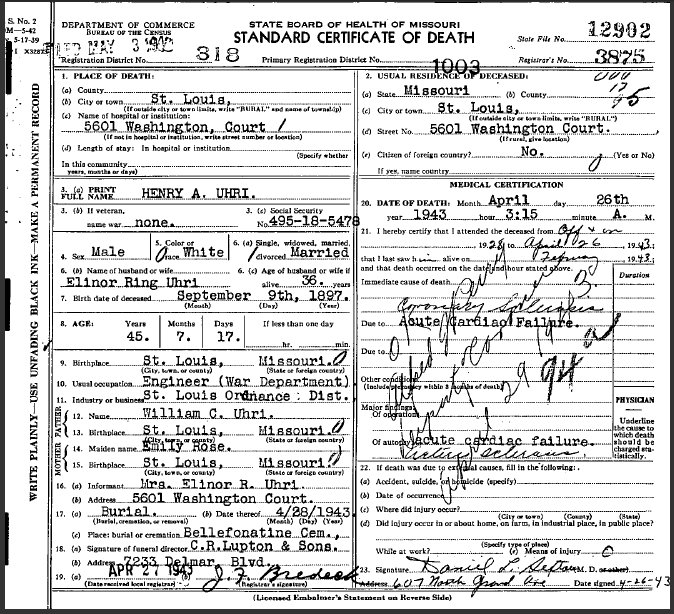 S. No. 2
M—5-42
5-17-39
I X3287
WRITE PLAINLY—USE UNFADING BLACK INK—MAKE A PERMANENT RECORD
DEPARTMENT OF COMMERCE
BUREAU OF THE CENSUS
MAY 3 1943
Registration District No. 318
STATE BOARD OF HEALTH OF MISSOURI
STANDARD CERTIFICATE OF DEATH
Primary Registration District No. 1003
State File No. 12902
Registrar's No. 3875
1. PLACE OF DEATH:
(a) County
(b) City or town St. Louis,
(If outside city or town limits, write "RURAL" and name of township)
(c) Name of hospital or institution:
5601 Washington, Court
(If not in hospital or institution, write street number or location)
(d) Length of stay: In hospital or institution
(Specify whether
In this community
years, months or days)
2. USUAL RESIDENCE OF DECEASED:
(a) State Missouri (b) County
(c) City or town St. Louis,
(If outside city or town limits, write "RURAL")
(d) Street No. 5601 Washington Court.
(If rural, give location)
(e) Citizen of foreign country? No. (Yes or No)
If yes, name country
3. (a) PRINT FULL NAME HENRY A. UHRI.
3. (b) If veteran, name war none.
3. (c) Social Security No. 495-18-5478
4. Sex Male
5. Color or race White
6. (a) Single, widowed, married, divorced Married
6. (b) Name of husband or wife
Elinor Ring Uhri
6. (c) Age of husband or wife if alive 36. years
7. Birth date of deceased September 9th, 1897.
(Month) (Day) (Year)
8. AGE: Years Months Days If less than one day
45. 7. 17. hr. min.
9. Birthplace St. Louis, Missouri.
(City, town, or county) (State or foreign country)
10. Usual occupation Engineer (War Department)
11. Industry or business St. Louis Ordnance Dist.
FATHER
12. Name William C. Uhri.
13. Birthplace St. Louis, Missouri.
(City, town, or county) (State or foreign country)
MOTHER
14. Maiden name Emily Rose.
15. Birthplace St. Louis, Missouri
(City, town, or county) (State or foreign country)
16. (a) Informant Mrs. Elinor R. Uhri.
(b) Address 5601 Washington Court.
17. (a) Burial. (b) Date thereof 4/28/1943
(Burial, cremation, or removal) (Month) (Day) (Year)
(c) Place: burial or cremation Bellefonatine Cem.,
18. (a) Signature of funeral director C.R.Lupton & Sons.
(b) Address 7233 Delmar, Blvd.
19. (a) APR 27 1943 (b) J. F. Bredeck
(Date received local registrar) (Registrar's signature)
MEDICAL CERTIFICATION
20. DATE OF DEATH: Month April day 26th
year 1943 hour 3:15 minute A. M.
21. I hereby certify that I attended the deceased from Off & on
1928 to April 26 1943;
that I last saw him alive on February 1943;
and that death occurred on the date and hour stated above.
Duration
Immediate cause of death
Coronary Sclerosis
Due to Acute Cardiac Failure.
Due to
Other conditions
(Include pregnancy within 3 months of death)
Major findings:
Of operations
Of autopsy acute cardiac failure.
PHYSICIAN
Underline the cause to which death should be charged statistically.
22. If death was due to external causes, fill in the following:
(a) Accident, suicide, or homicide (specify)
(b) Date of occurrence
(c) Where did injury occur?
(City or town) (County) (State)
(d) Did injury occur in or about home, on farm, in industrial place, in public place?
(Specify type of place)
While at work? (e) Means of injury
23. Signature Daniel L. M. D. or other
Address 607 North Grand Ave Date signed 4-26-43
(Licensed Embalmer's Statement on Reverse Side)